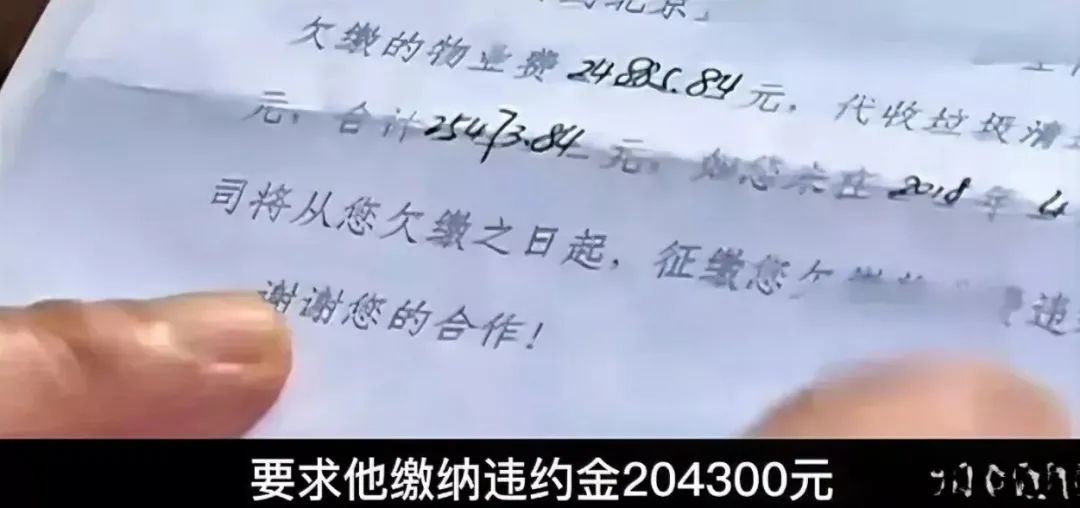 北京」
欠缴的物业费24885.84元，代收垃圾清
元，合计25473.84元，如您未在2018年4
司将从您欠缴之日起，征缴您欠缴 费违
谢谢您的合作！
要求他缴纳违约金204300元